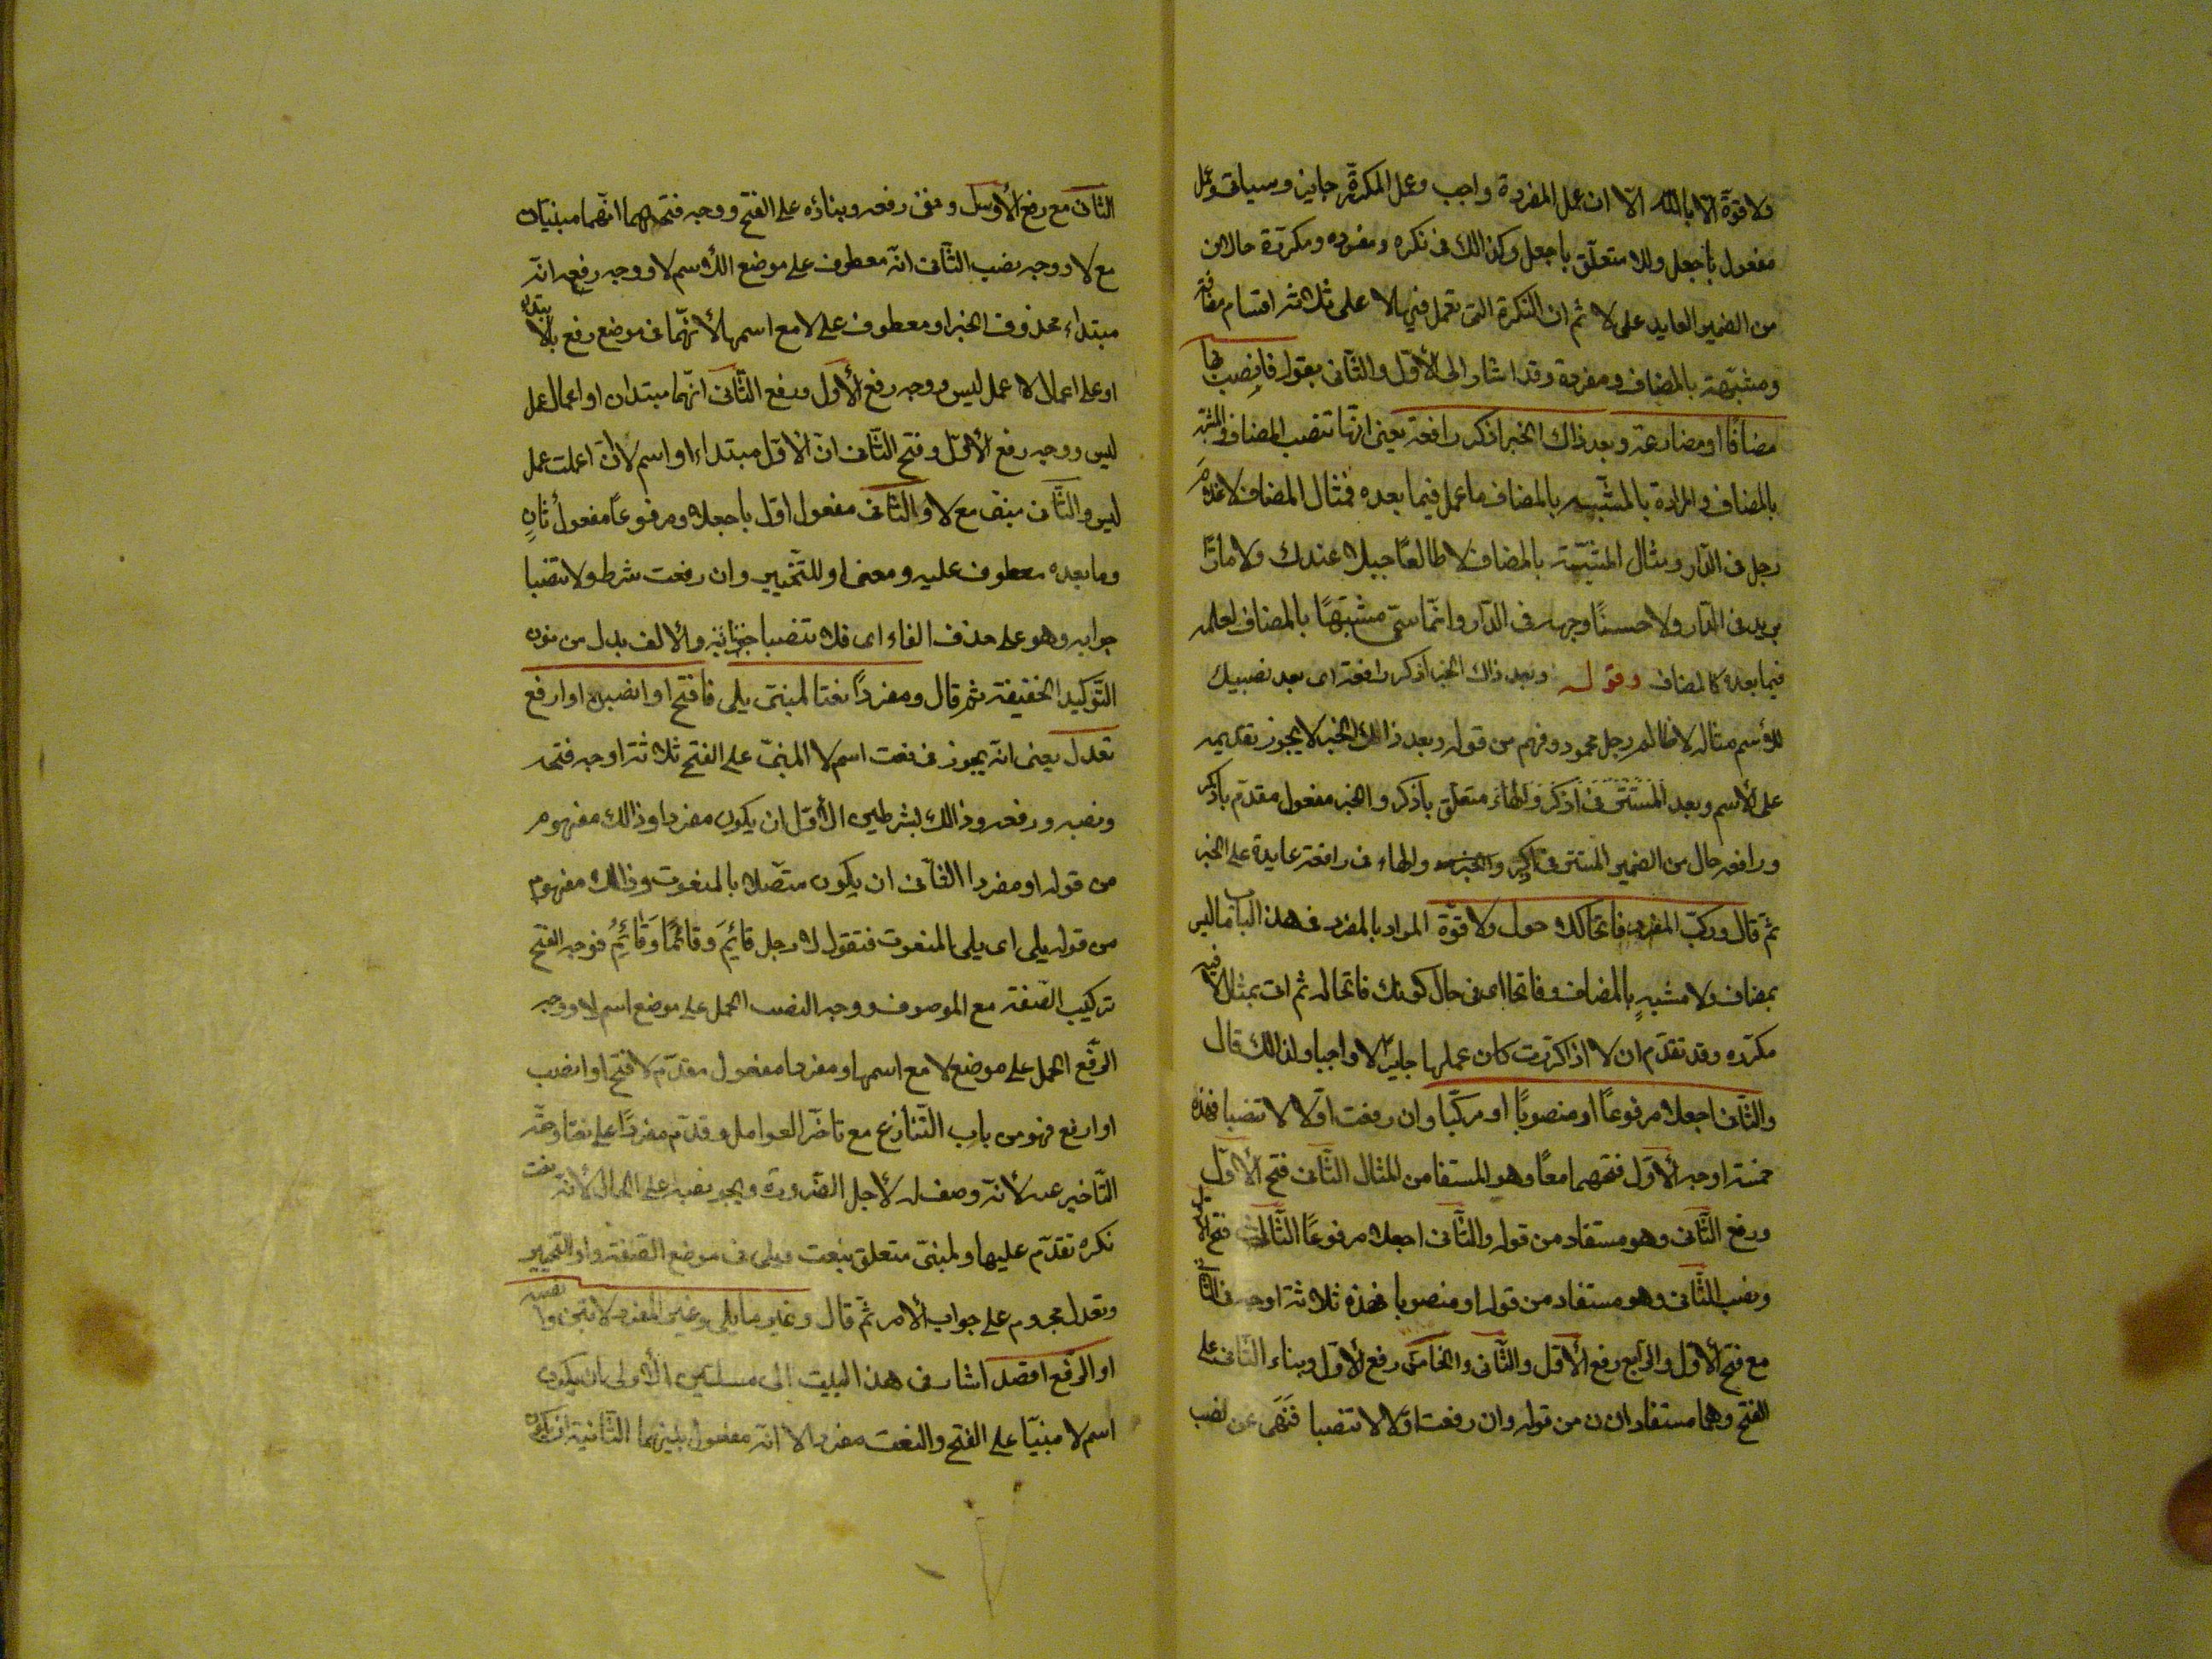 ولا قوّة الا بالله الّا ان عمل المفردة واجب وعمل المكررة جايز وسياتي وعمل
مفعول باجعل وللا متعلّق باجعل وكذالك في نكره ومفرده ومكررّة حالان
من الضمير العايد على لا ثم ان النكرة التى تعمل فيها لا على ثلاثة اقسام مضافة
ومشبّهة بالمضاف ومفردة وقد اشار الى الأوّل والثّانى بقوله فانصب بها
مضافًا او مضارعة وبعد ذاك الخبر اذكر رافعة يعنى انّها تنصب المضاف والمشبّه
بالمضاف والمراد بالمشبّه بالمضاف ما عمل فيما بعده فمثال المضاف لا غلام
رجل في الدّار ومثال المشبّهة بالمضاف لا طالعًا جبلا عندك ولا مارًّا
بزيد في الدّار ولا حسنًا وجهه في الدّار وانّما سمّى مشبّهًا بالمضاف لعمله
فيما بعده كالمضاف وقوله وبعد ذاك الخبر اذكر رافعة اى بعد نصبك
للأسم مثاله لا ظالم رجل محمود وفهم من قوله وبعد ذالك الخبر لا يجوز تقديمه
على الأسم وبعد متعلّق بأذكر والخبر مفعول مقدّم بأذكر
ورافعه حال من الضمير المستتر في اذكر والهاء في رافعة عايدة على الخبر
ثمّ قال وركّب المفرد فاتحا كلا حول ولا قوّة المراد بالمفرد في هذا الباب ما ليس
بمضاف ولا مشبهٍ بالمضاف وفاتحا اى في حال كونك فاتحا له ثم اتى بمثال لا فيه
مكرّره وقد تقدّم ان لا اذا كرّرت كان عملها جايزا لا واجبا ولذالك قال
والثّانى اجعلا مرفوعًا او منصوبًا او مركّبا وان رفعت اوّلا لا تنصبا فهذه
خمسة اوجه الأوّل فتحهما معًا وهو المستفاد من المثال الثّانى فتح الأوّل
ورفع الثّانى وهو مستفاد من قوله والثّانى اجعلا مرفوعًا الثّالث فتح الأوّل
ونصب الثّانى وهو مستفاد من قوله او منصوبا فهذه ثلاثة اوجه في الثّانى
مع فتح الأوّل والرّابع رفع الأوّل والثّانى والخامس رفع الأوّل وبناء الثّانى على
الفتح وهما مستفادان من قوله وان رفعت اوّلا لا تنصبا فنهى عن نصب
الثّانى مع رفع الأوّل وبقى رفعه وبناؤه على الفتح ووجه فتحهما انّهما مبنيّان
مع لا ووجه نصب الثّانى انّه معطوف على موضع الاسم لا ووجه رفعه انّه
مبتداء محذوف الخبر او معطوف على لا مع اسمها لأنّهما في موضع رفع بالابتداء
او على اعمال لا عمل ليس ووجه رفع الأوّل ورفع الثّانى انّهما مبتدان او اعمال عمل
ليس ووجه رفع الأوّل وفتح الثّانى انّ الأوّل مبتداء او اسم لأن اعملت عمل
ليس والثّانى مبنى مع لا والثّانى مفعول اوّل باجعلا ومرفوعًا مفعول ثانٍ
وما بعده معطوف عليه ومعنى او للتّخيير وان رفعت شرط ولا تنصبا
جوابه وهو على حذف الفاء اى فلا تنصبا والألف بدل من نون
التّوكيد الخفيفة ثم قال ومفردًا نعتا لمبنى يلى فافتح او انصبن او ارفع
تعدل يعنى انّه يجوز في نعت اسم لا المبنىّ على الفتح ثلاثة اوجه فتحه
ونصبه ورفعه وذالك بشرطين الأوّل ان يكون مفردا وذالك مفهوم
من قوله او مفردا الثّانى ان يكون متّصلا بالمنعوت وذالك مفهوم
من قوله يلى اى يلى المنعوت فتقول لا رجل قائِمَ وقائمًا وقَائِمٌ فوجه الفتح
تركيب الصّفة مع الموصوف ووجه النصب الحمل على موضع اسم لا ووجه
الرّفع الحمل على موضع لا مع اسمها ومفردا مفعول مقدّم لافتح او انصب
او ارفع فهو من باب التّنازع مع تاخّر العوامل وقدّم مفردًا على نعتا وحقّه
التّاخير عنه لأنّه وصف له لأجل الضّرورة ويجوز نصبه على الحال لأنّه نعت
نكره تقدّم عليها ولمبنىّ متعلق بنعت ويلى في موضع الصّفة واو للتّخيير
وتعدل مجزوم على جواب الأمر ثمّ قال وغير ما يلى وغير المفرد لا تبن وانصبه
او الرّفع اقصد اشار في هذا البيت الى مسئلتين الأولى ان يكون
اسم لا مبنيّا على الفتح والنعت مفردا الا انّه مفصول بينهما الثّانية ان يكون